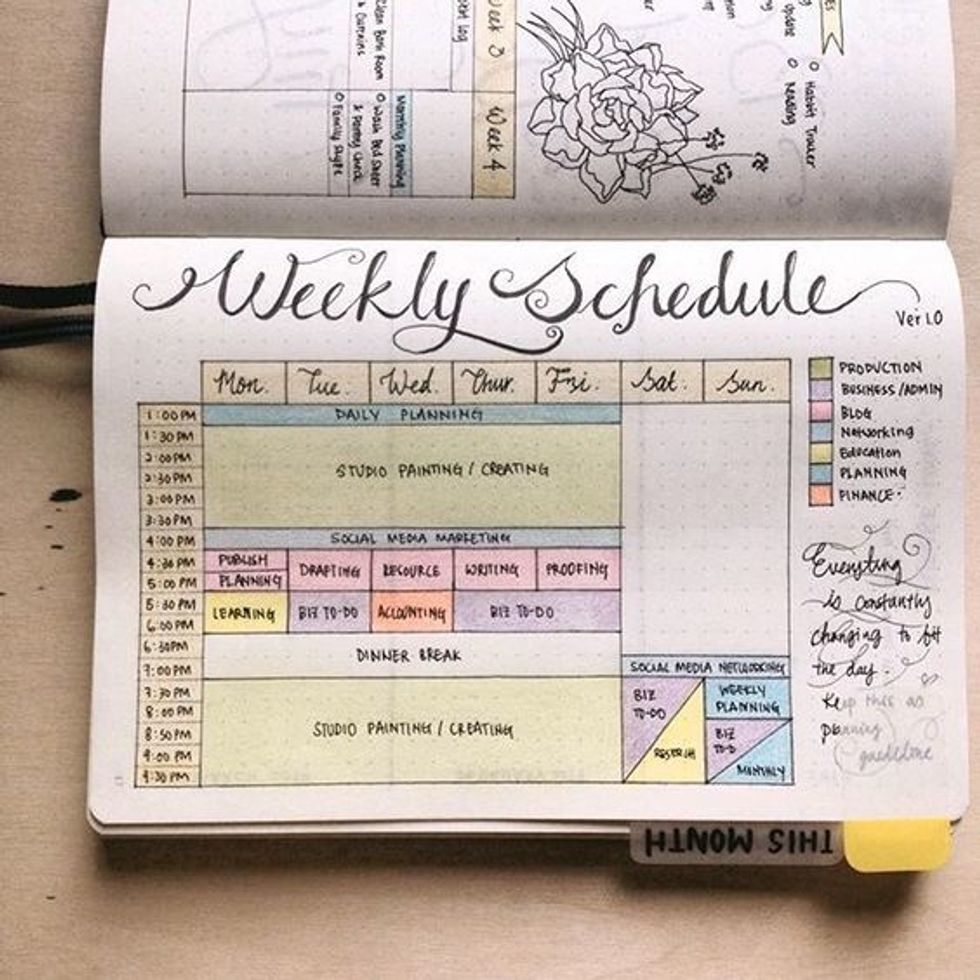 Week 3
Week 4
Clean Bath Room
Monthly Planning
O Wash Bed Sheet
O Family Skype
O Habbit Tracker
O Reading
Weekly Schedule
Ver 1.0
Mon. Tue. Wed. Thur. Fri. Sat. Sun.
1:00 PM DAILY PLANNING
1:30 PM
2:00 PM
2:30 PM STUDIO PAINTING / CREATING
3:00 PM
3:30 PM
4:00 PM SOCIAL MEDIA MARKETING
4:30 PM PUBLISH DRAFTING RESOURCE WRITING PROOFING
5:00 PM PLANNING
5:30 PM LEARNING BIZ TO-DO ACCOUNTING BIZ TO-DO
6:00 PM
6:30PM DINNER BREAK
7:00 PM SOCIAL MEDIA NETWORKING
7:30 PM BIZ TO-DO WEEKLY PLANNING
8:00 PM
8:30 PM STUDIO PAINTING / CREATING BIZ TO-D
9:00 PM RESERCH
9:30 PM MONTHLY
PRODUCTION
BUSINESS/ADMIN
BLOG
Networking
Education
PLANNING
FINANCE.
Everything
is constantly
changing to fit
the day.
Keep this as
planning
guideline
THIS MONTH